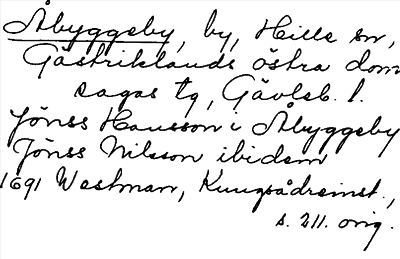 Åbyggeby, by, Hille sn,
Gästriklands östra dom
sagas tg, Gävleb. l.
Jönss Hansson i Åbyggeby
Jöns Nilsson ibidem
1691 Westman, Kungsådreinst.,
s. 211. orig.